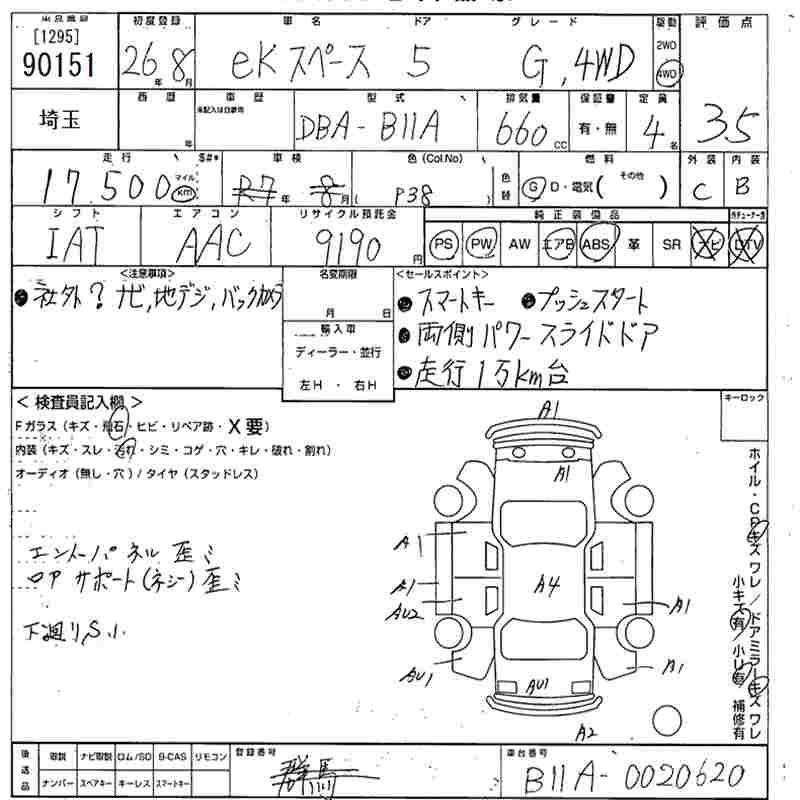 出品番号
[1295]
90151
初度登録
26年 8月
車名 ドア グレード
eKスペース 5 G, 4WD
駆動
2WD
4WD
評価点
3.5
埼玉
西暦
年
車歴
未記入は自家用
型式
DBA-B11A
排気量
660 CC
保証書
有・無
定員
4名
走行 S#*
17,500 マイル km
車検
R7年 8月
色(Col.No)
( P38 )
色替
燃料
G D・電気 ( その他 )
外装
C
内装
B
シフト
IAT
エアコン
AAC
リサイクル預託金
9190円
純正装備品
PS PW AW エアB ABS 革 SR ナビ DTV
<注意事項>
●社外?ナビ,地デジ,バックカメラ
名変期限
月 日
輸入車
ディーラー・並行
左H ・ 右H
<セールスポイント>
●スマートキー ●プッシュスタート
●両側パワースライドドア
●走行1万km台
<検査員記入欄>
Fガラス(キズ・飛石・ヒビ・リペア跡・X要)
内装(キズ・スレ・汚れ・シミ・コゲ・穴・キレ・破れ・割れ)
オーディオ(無し・穴)/タイヤ(スタッドレス)
エンドパネル歪ミ
ロアサポート(ネジ)歪ミ
下廻り,S小
キーロック
A1
A1
A1
A1
A4
AU2
A1
AU1
AU1
A1
A2
ホイル・CPキズワレ/ドアミラーキズワレ
小キズ有/小U有 補修有
後送品
取説 ナビ取説 ロム/SD B-CAS リモコン
ナンバー スペアキー キーレス スマートキー
登録番号
群馬
車台番号
B11A-0020620